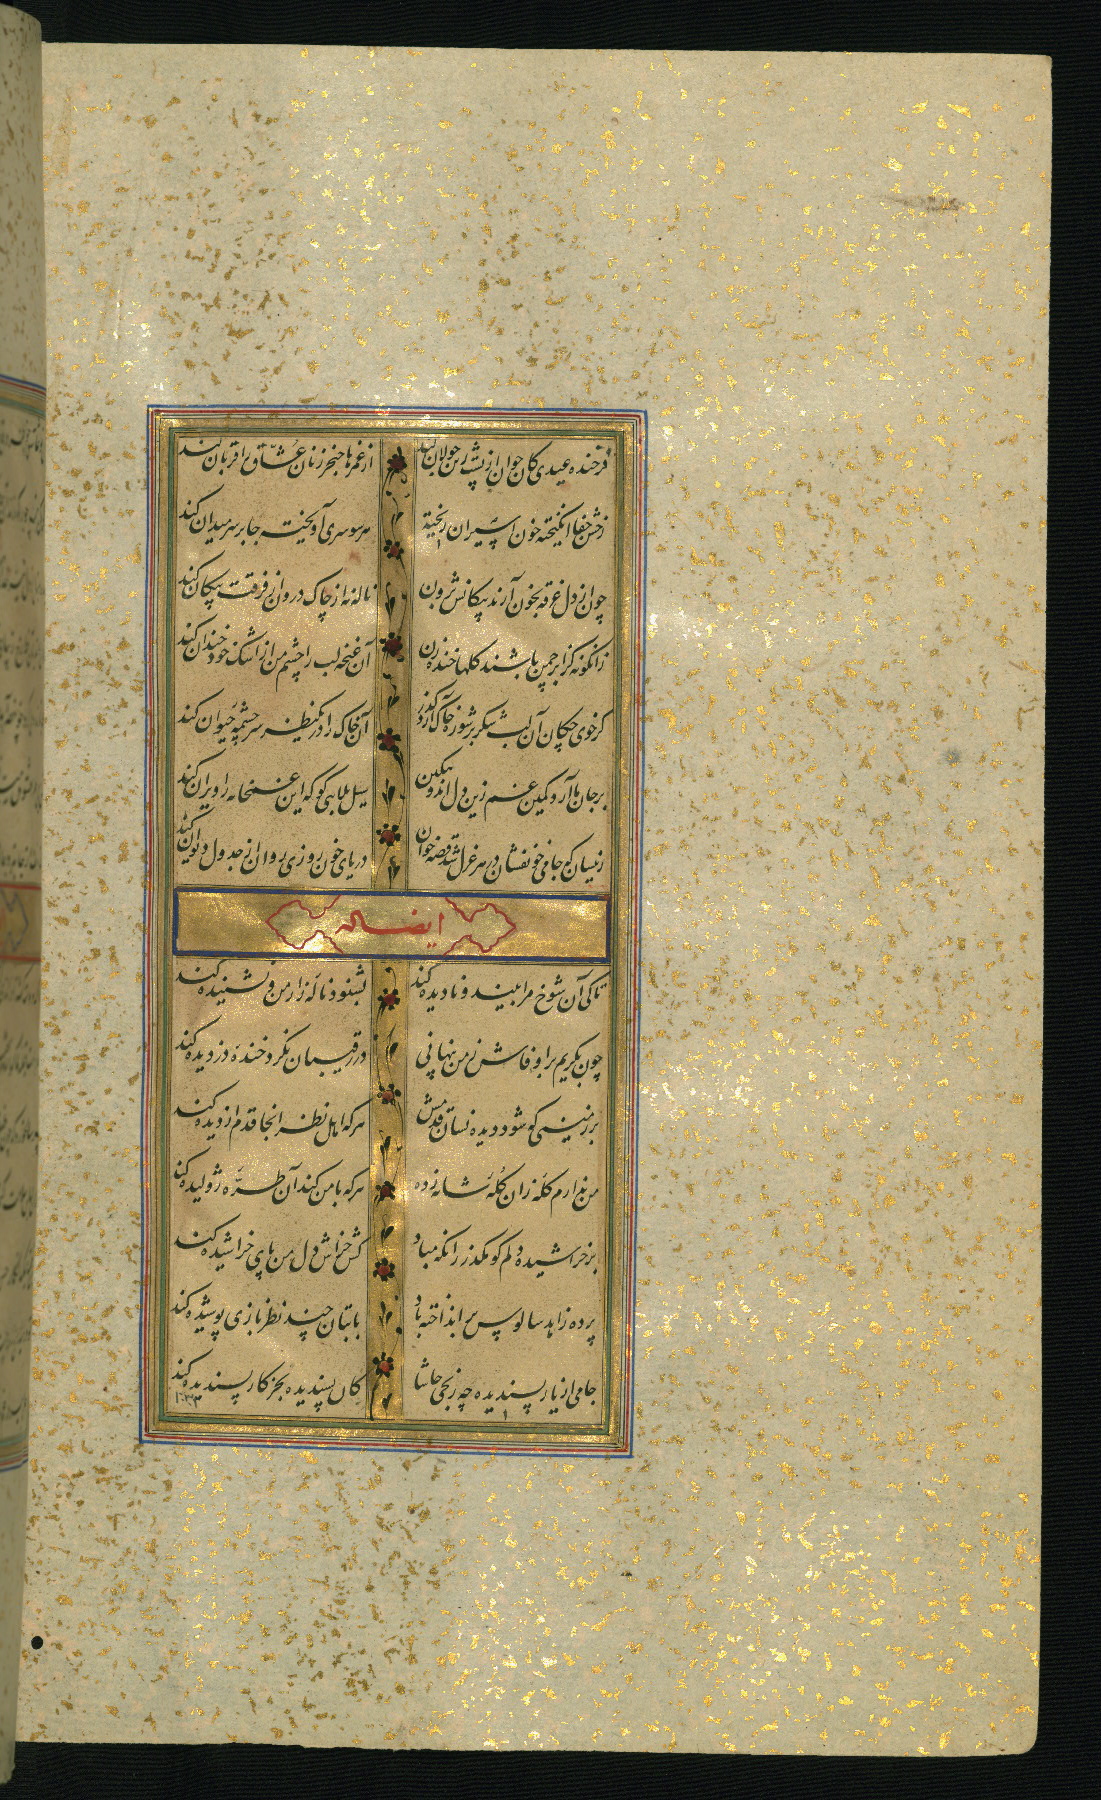 فرخنده عیدی کان جوان از پشت زین جولان کند از غمزها خنجر زنان عشاق را قربان کند
رخش جفا انگیخته خون اسیران ریخته هر سو سری آویخته جا بر سر میدان کند
چون از دل غرقه بخون آرند پیکانش برون نالد نه از چاک درون از فرقت پیکان کند
زانگونه کز ابر چمن باشند گلها خنده زن آن غنچه لب را چشم من از اشک خود خندان کند
گر خوی چکان آن لب شکر بر شوره خاک آرد گذر آن خاک را در یک نظر سرچشمه حیوان کند
بر جان ما آرد کمین غم زین دل اندوهگین سیل بلایی کو که این غمخانه را ویران کند
زینسان که جامی خونفشان در هر غزل شد قصه خوان دریای خون روزی روان از جدول دیوان کند
ایضا له
تا کی آن شوخ مرا بیند و نادیده کند بشنود ناله زار من و نشنیده کند
چون بگریم بر او فاش ز من پنهانی در رقیبان نگرد خنده دزدیده کند
بر زمینی که شود دیده نشان قدمش هر که اهل نظر آنجا قدم از دیده کند
من ندارم گله زان کاکل شانه زده هر که با من کند آن طره ژولیده کند
بر خراشیده دلم گو مگذر زانکه مباد کش خراش دل من پای خراشیده کند
پرده زاهد سالوس بر انداخته باد با بتان چند نظر بازی پوشیده کند
جامی از یار پسندیده چه رنجی حاشا کان پسندیده بجز کار پسندیده کند